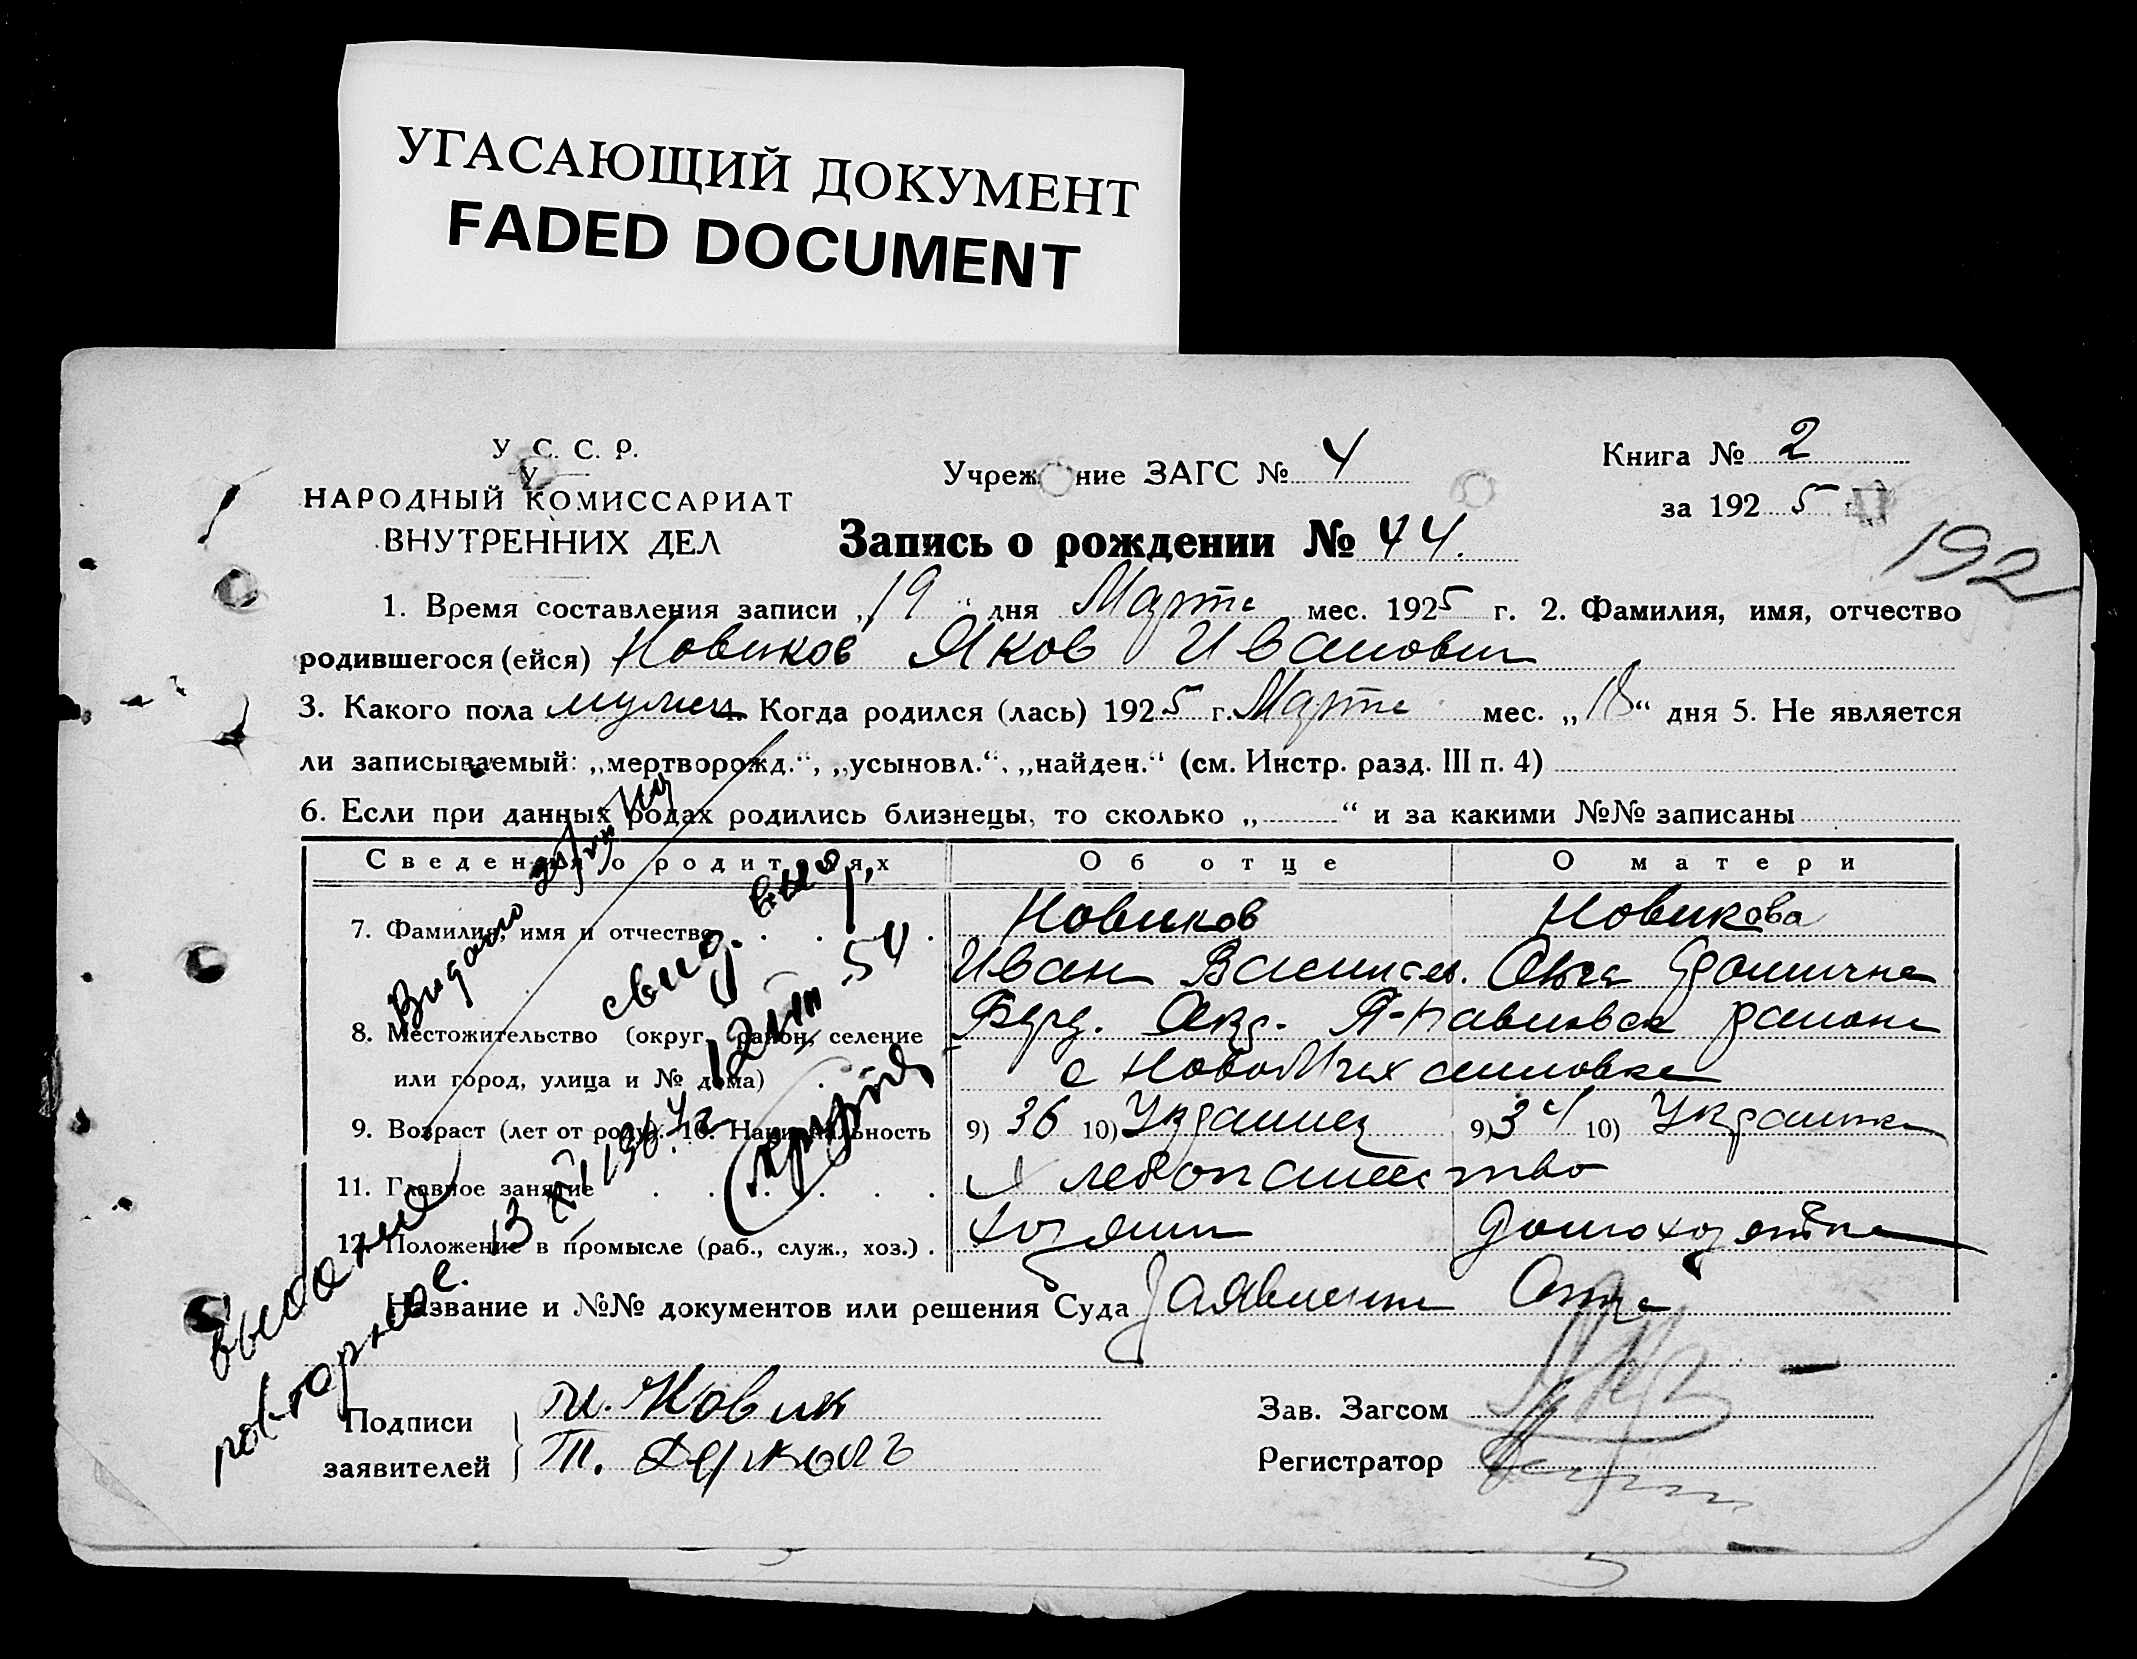 УГАСАЮЩИЙ ДОКУМЕНТ
FADED DOCUMENT
У. С. С. Р.
НАРОДНЫЙ КОМИССАРИАТ
ВНУТРЕННИХ ДЕЛ
Учреж ние ЗАГС № 4
Книга № 2
за 1925
Запись о рождении № 44.
192
1. Время составления записи „19“ дня Марта мес. 1925 г. 2. Фамилия, имя, отчество
родившегося (ейся) Новиков Яков Иванович
3. Какого пола мужск 4. Когда родился (лась) 1925 г. Марта мес. „18“ дня 5. Не является
ли записываемый: „мертворожд.“, „усыновл.“, „найден.“ (см. Инстр. разд. III п. 4)
6. Если при данных родах родились близнецы, то сколько „ “ и за какими №№ записаны
Сведения о родителях Об отце О матери
7. Фамилия, имя и отчество Новиков Новикова
Иван Василев. Ольга
8. Местожительство (округ, район, селение Берд. Окр. района
или город, улица и № дома) с
9. Возраст (лет от роду). 10. Национальность 9) 36 10) Украинец 9) 34 10) Украинка
11. Главное занятие Хлебопашество
12. Положение в промысле (раб., служ., хоз.) хозяин домохозяйка
Название и №№ документов или решения Суда Заявление Отца
Видано
свид.
12 VIII 54
Выдано
повторное.
13 XI
Подписи
заявителей
п. Новик
Т.
Зав. Загсом
Регистратор